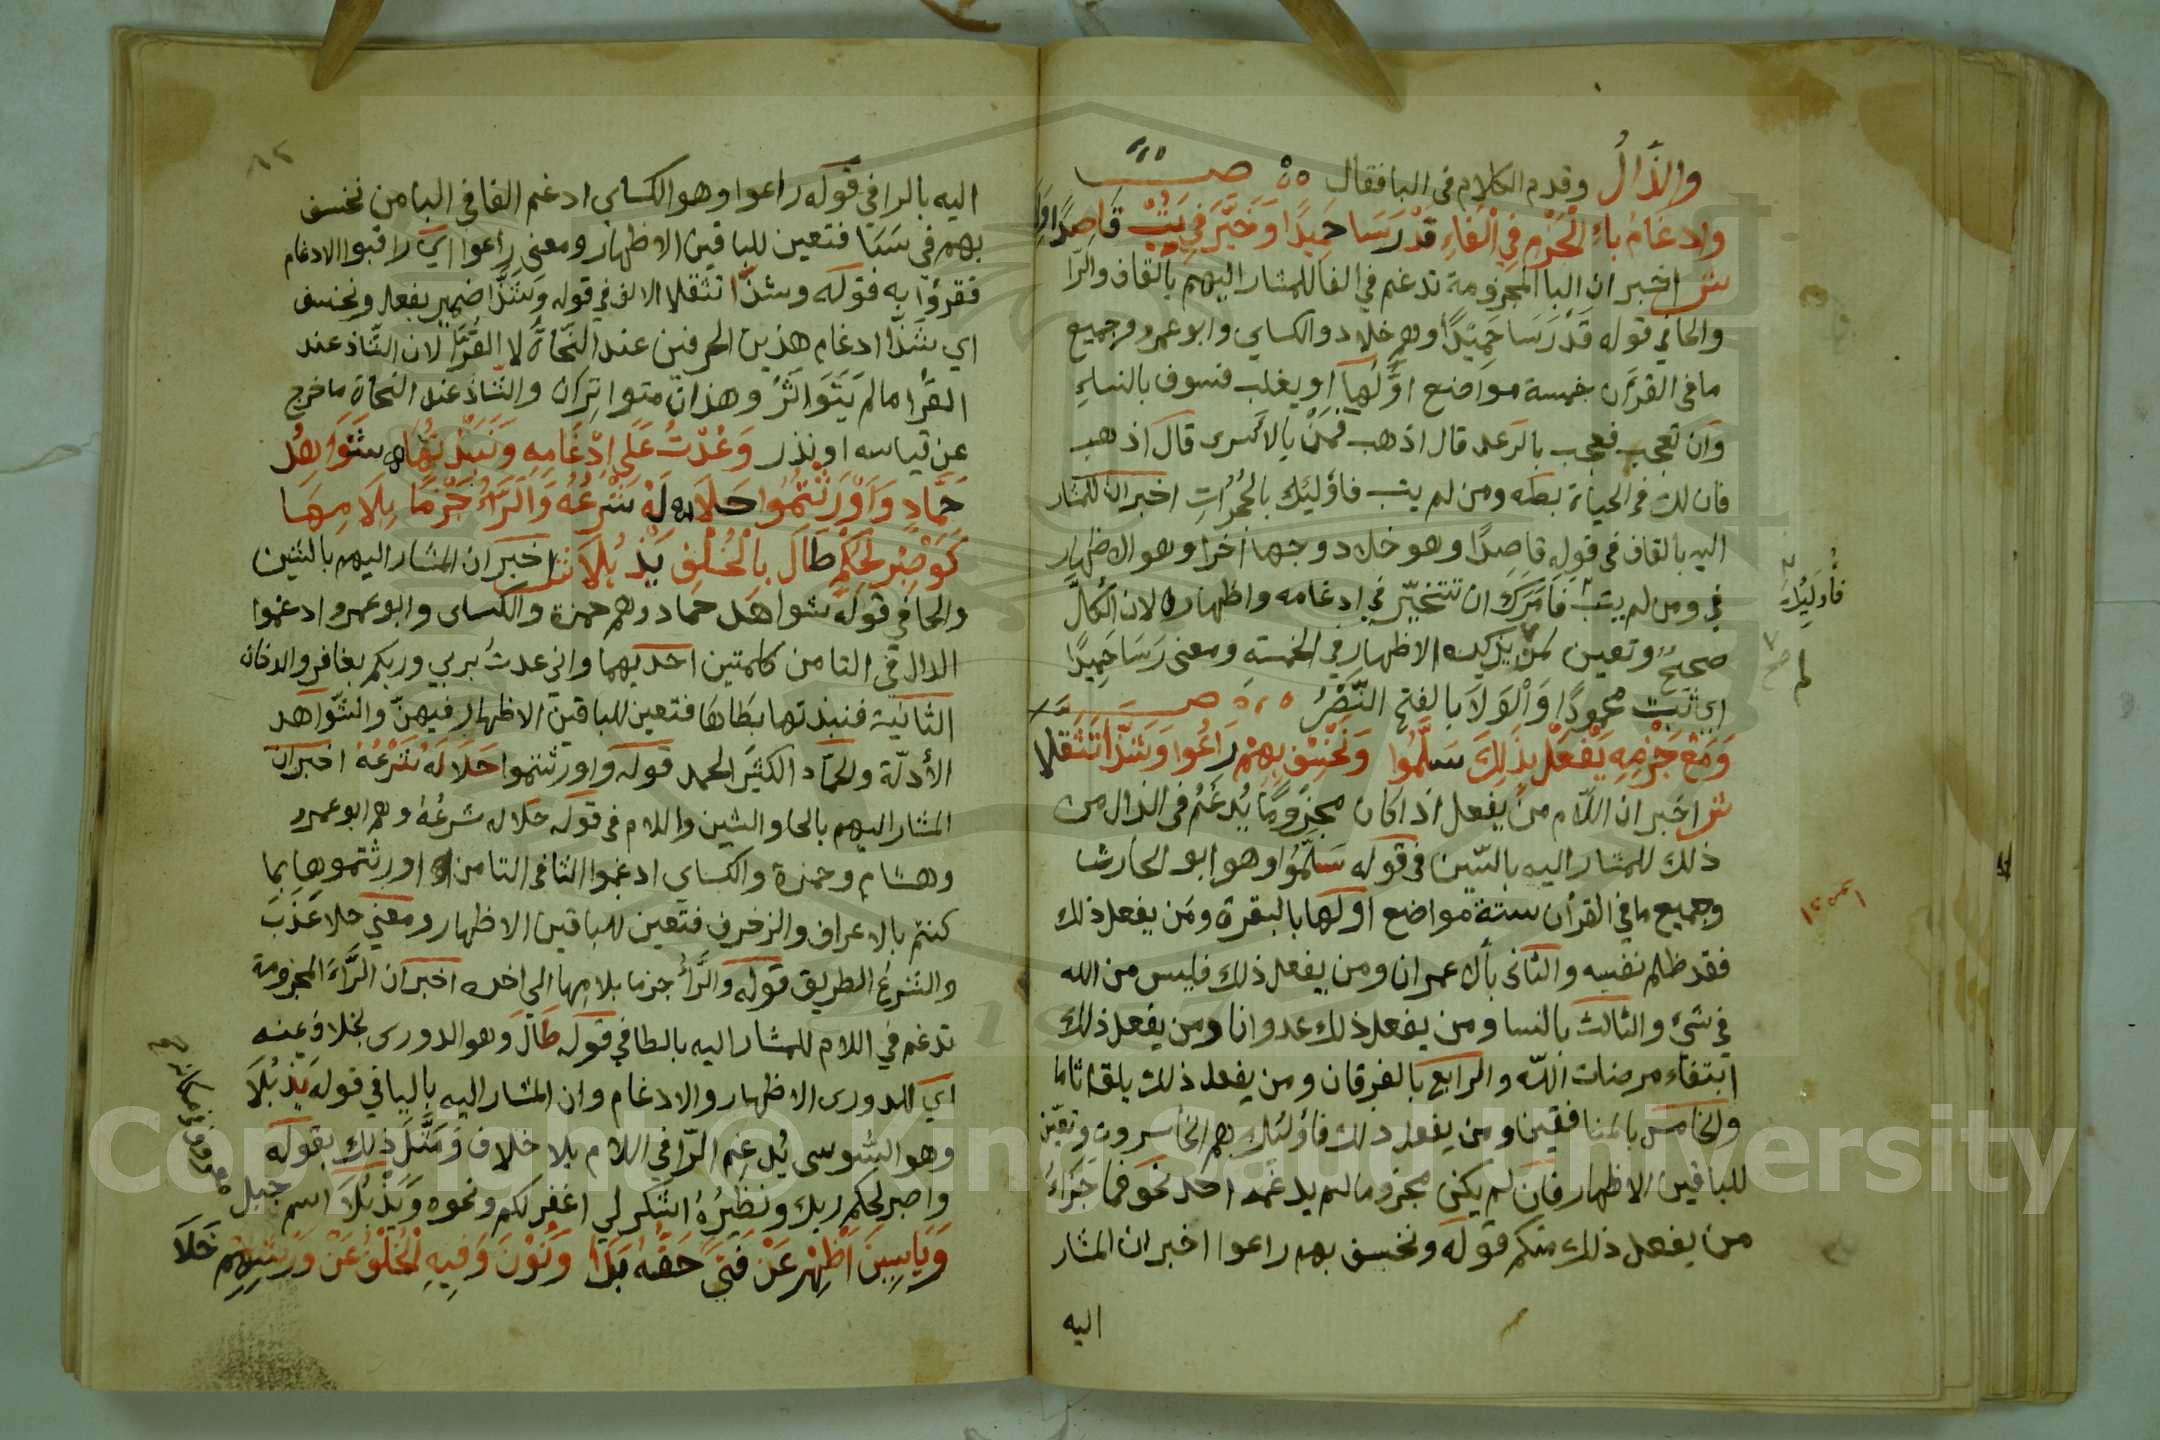 والذال وقدم الكلام في البا فقال ص
وادغام باء الجزم في الفاء قد رسا حميدا وخير في يتب قاصدا ولا
ش اخبر ان البا المجزومة تدغم في الفا للمشار اليهم بالقاف والرا
والحا في قوله قد رسا حميدا وهم خلاد والكساي وابو عمرو وجميع
ما في القران خمسة مواضع اولها او يغلب فسوف بالنساء
وان تعجب فعجب بالرعد قال اذهب فمن بالاسرى قال اذهب
فان لك في الحياة بطه ومن لم يتب فاولئك بالحجرات اخبر ان للمشار
اليه بالقاف في قوله قاصدا وهو خلاد وجها اخرا وهو الاظهار
في ومن لم يتب فامرك ان تتخير في ادغامه واظهاره لان الكل
صحيح وتعين لمن يذكره الاظهار في الخمسة ومعنى رسا حميدا
اي ثبت محمودا والولا بالفتح النصر ص
ومع جزمه يفعل بذلك سلموا ونخسف بهم راعوا وشذا تثقلا
ش اخبر ان اللام من يفعل اذا كان مجزوما يدغم في الذال من
ذلك للمشار اليه بالسين في قوله سلموا وهو ابو الحارث
وجميع ما في القران ستة مواضع اولها بالبقرة ومن يفعل ذلك
فقد ظلم نفسه والثاني بال عمران ومن يفعل ذلك فليس من الله
في شيء والثالث بالنسا ومن يفعل ذلك عدوانا ومن يفعل ذلك
ابتغاء مرضات الله والرابع بالفرقان ومن يفعل ذلك يلق اثاما
والخامس بالمنافقين ومن يفعل ذلك فاولئك هم الخاسرون وتعين
للباقين الاظهار فان لم يكن مجزوما لم يدغمه احد نحو فما جزاء
من يفعل ذلك منكم قوله ونخسف بهم راعوا اخبر ان المشار
اليه
فاولئك
اليه بالرا في قوله راعوا وهو الكساي ادغم الفا في البا من نخسف
بهم في سبا فتعين للباقين الاظهار ومعنى راعوا اي راقبوا الادغام
فقرؤا به قوله وشذا تثقلا الالف في قوله وشذا ضمير يفعل ونخسف
اي شذا ادغام هذين الحرفين عند النحاة لا القرا لان الشاذ عند
القرا ما لم يتواتر وهذان متواتران والشاذ عند النحاة ما خرج
عن قياسه او نذر وعذت على ادغامه ونبذتها شواهد
حماد واورثتموا حلا له شرعه والراء جزما بلامها
كواصبر لحكم طال بالخلف يذبلا ش اخبر ان المشار اليهم بالشين
والحا في قوله شواهد حماد وهم حمزة والكساى وابو عمرو ادغموا
الدال في التا من كلمتين احديهما واني عدت بربي وربكم بغافر والدخان
الثانية فنبذتها بطاها فتعين للباقين الاظهار فيهن والشواهد
الأدلة والحماد الكثير الحمد قوله واورثتموا حلا له شرعه اخبر ان
المشار اليهم بالحا والشين واللام في قوله حلا له شرعه وهم ابو عمرو
وهشام وحمزة والكساى ادغموا الثا في التا من اورثتموها بما
كنتم بالاعراف والزخرف فتعين للباقين الاظهار ومعنى حلا عذب
والشرع الطريق قوله والراء جزما بلامها الي اخره اخبر ان الراء المجزومة
تدغم في اللام للمشار اليه بالطا في قوله طال وهو الدورى بخلاف عنه
اي للدورى الاظهار والادغام وان المشار اليه باليا في قوله يذبلا
وهو السوسى يدغم الرا في اللام بلا خلاف ومثل ذلك بقوله
واصبر لحكم ربك ونظيره اشكر لي اغفر لكم ونحوه ويذبلا اسم جبل
وياسين اظهر عن فتى حقه بدا ونون وفيه الخلف عن ورشهم خلا
Copyright © King Saud University